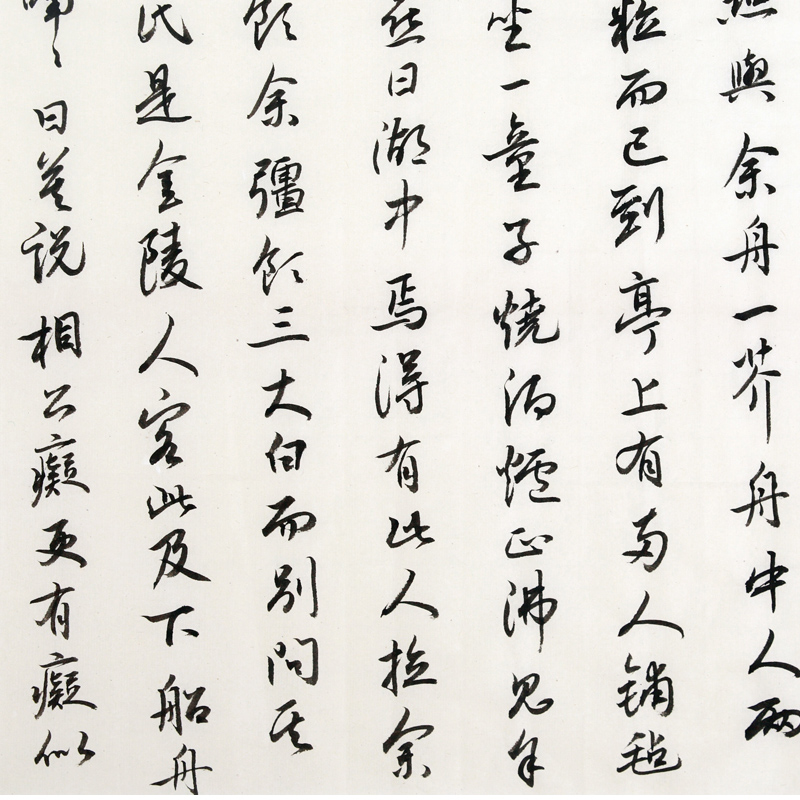 點與余舟一芥舟中人兩
粒而已到亭上有兩人鋪氈
坐一童子燒酒爐正沸見余
曰湖中焉得有此人拉余
飲余彊飲三大白而別問其
氏是金陵人客此及下船舟
喃々曰莫説相公癡更有癡似